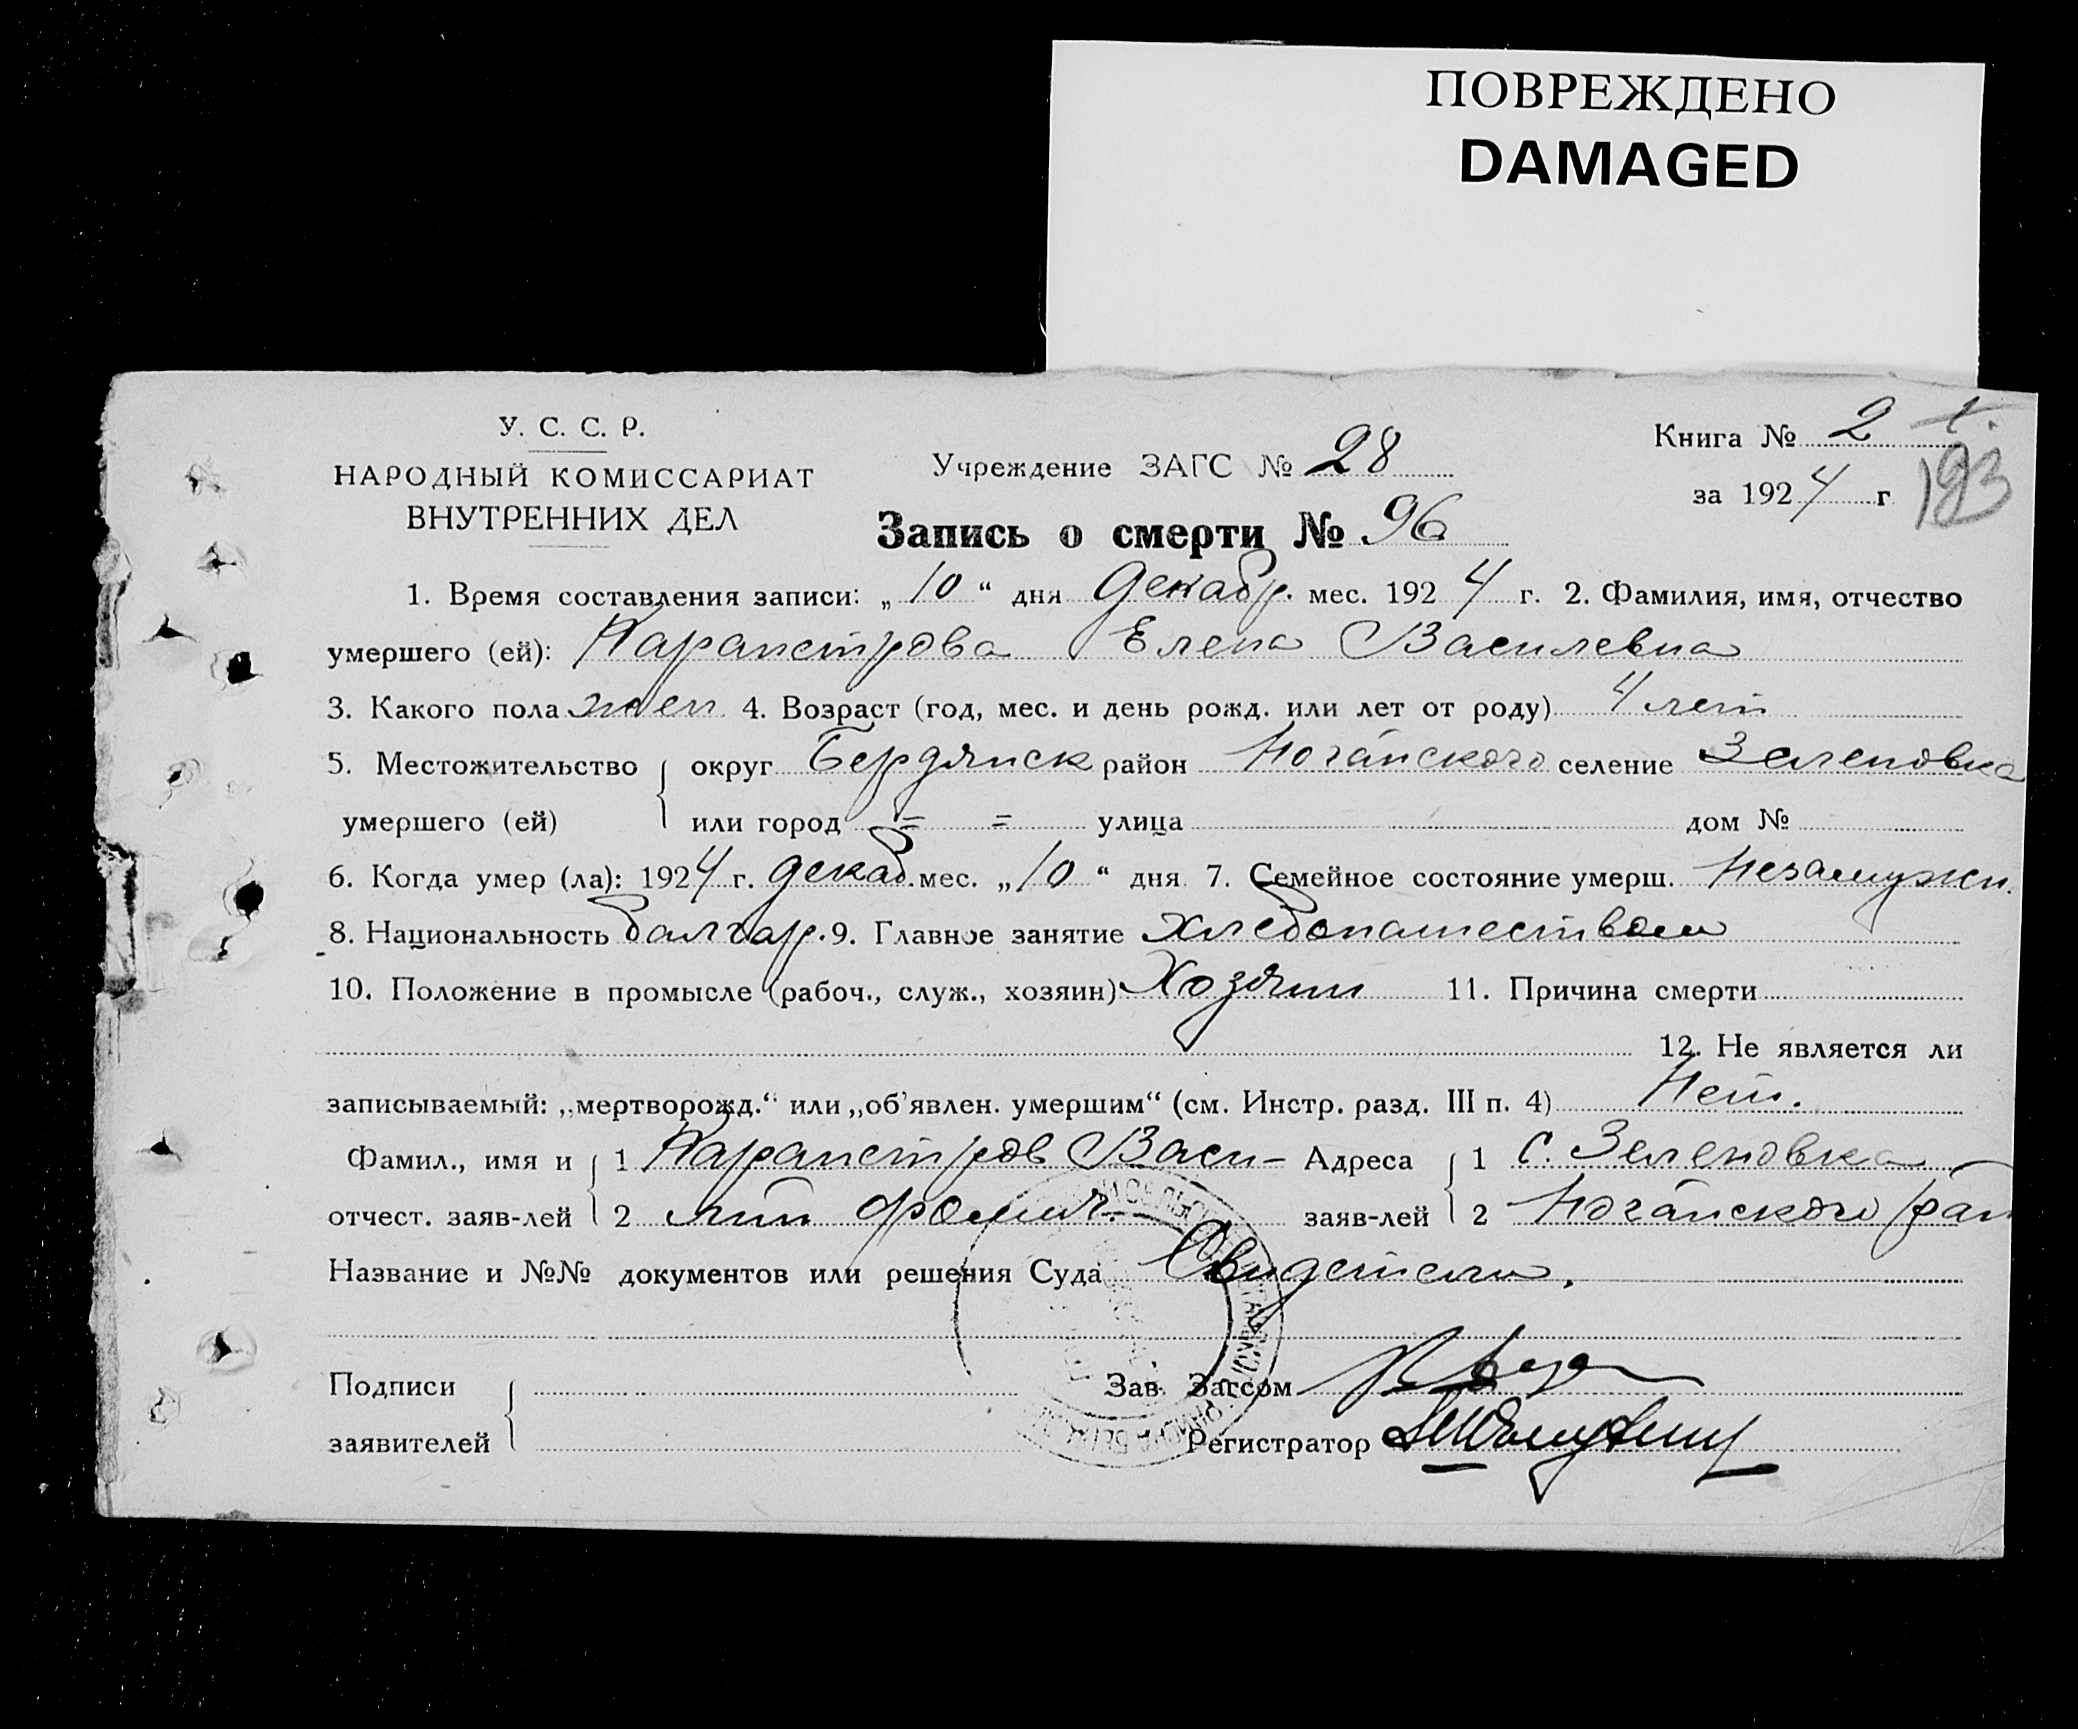 ПОВРЕЖДЕНО
DAMAGED
У. С. С. Р.
НАРОДНЫЙ КОМИССАРИАТ
ВНУТРЕННИХ ДЕЛ
Учреждение ЗАГС № 28
Книга № 2
за 1924 г
193
Запись о смерти № 96
1. Время составления записи: „10“ дня декабр. мес. 1924 г. 2. Фамилия, имя, отчество
умершего (ей): Карапетрова Елена Василевна
3. Какого пола жен 4. Возраст (год, мес. и день рожд. или лет от роду) 4 лет
5. Местожительство округ Бердянск район Ногайского селение Зеленовка
умершего (ей) или город = = улица дом №
6. Когда умер (ла): 1924 г. декаб. мес. „10“ дня 7. Семейное состояние умерш. Незамужн.
8. Национальность болгар. 9. Главное занятие хлебопашеством
10. Положение в промысле (рабоч., служ., хозяин) Хозяин 11. Причина смерти
12. Не является ли
записываемый: „мертворожд.“ или „об’явлен. умершим“ (см. Инстр. разд. III п. 4) Нет.
Фамил., имя и 1 Карапетров Васи- Адреса 1 с. Зеленовка
отчест. заяв-лей 2 лий Фомич. заяв-лей 2 Ногайского рай
Название и №№ документов или решения Суда Свидетели.
Подписи Зав. Загсом
заявителей Регистратор